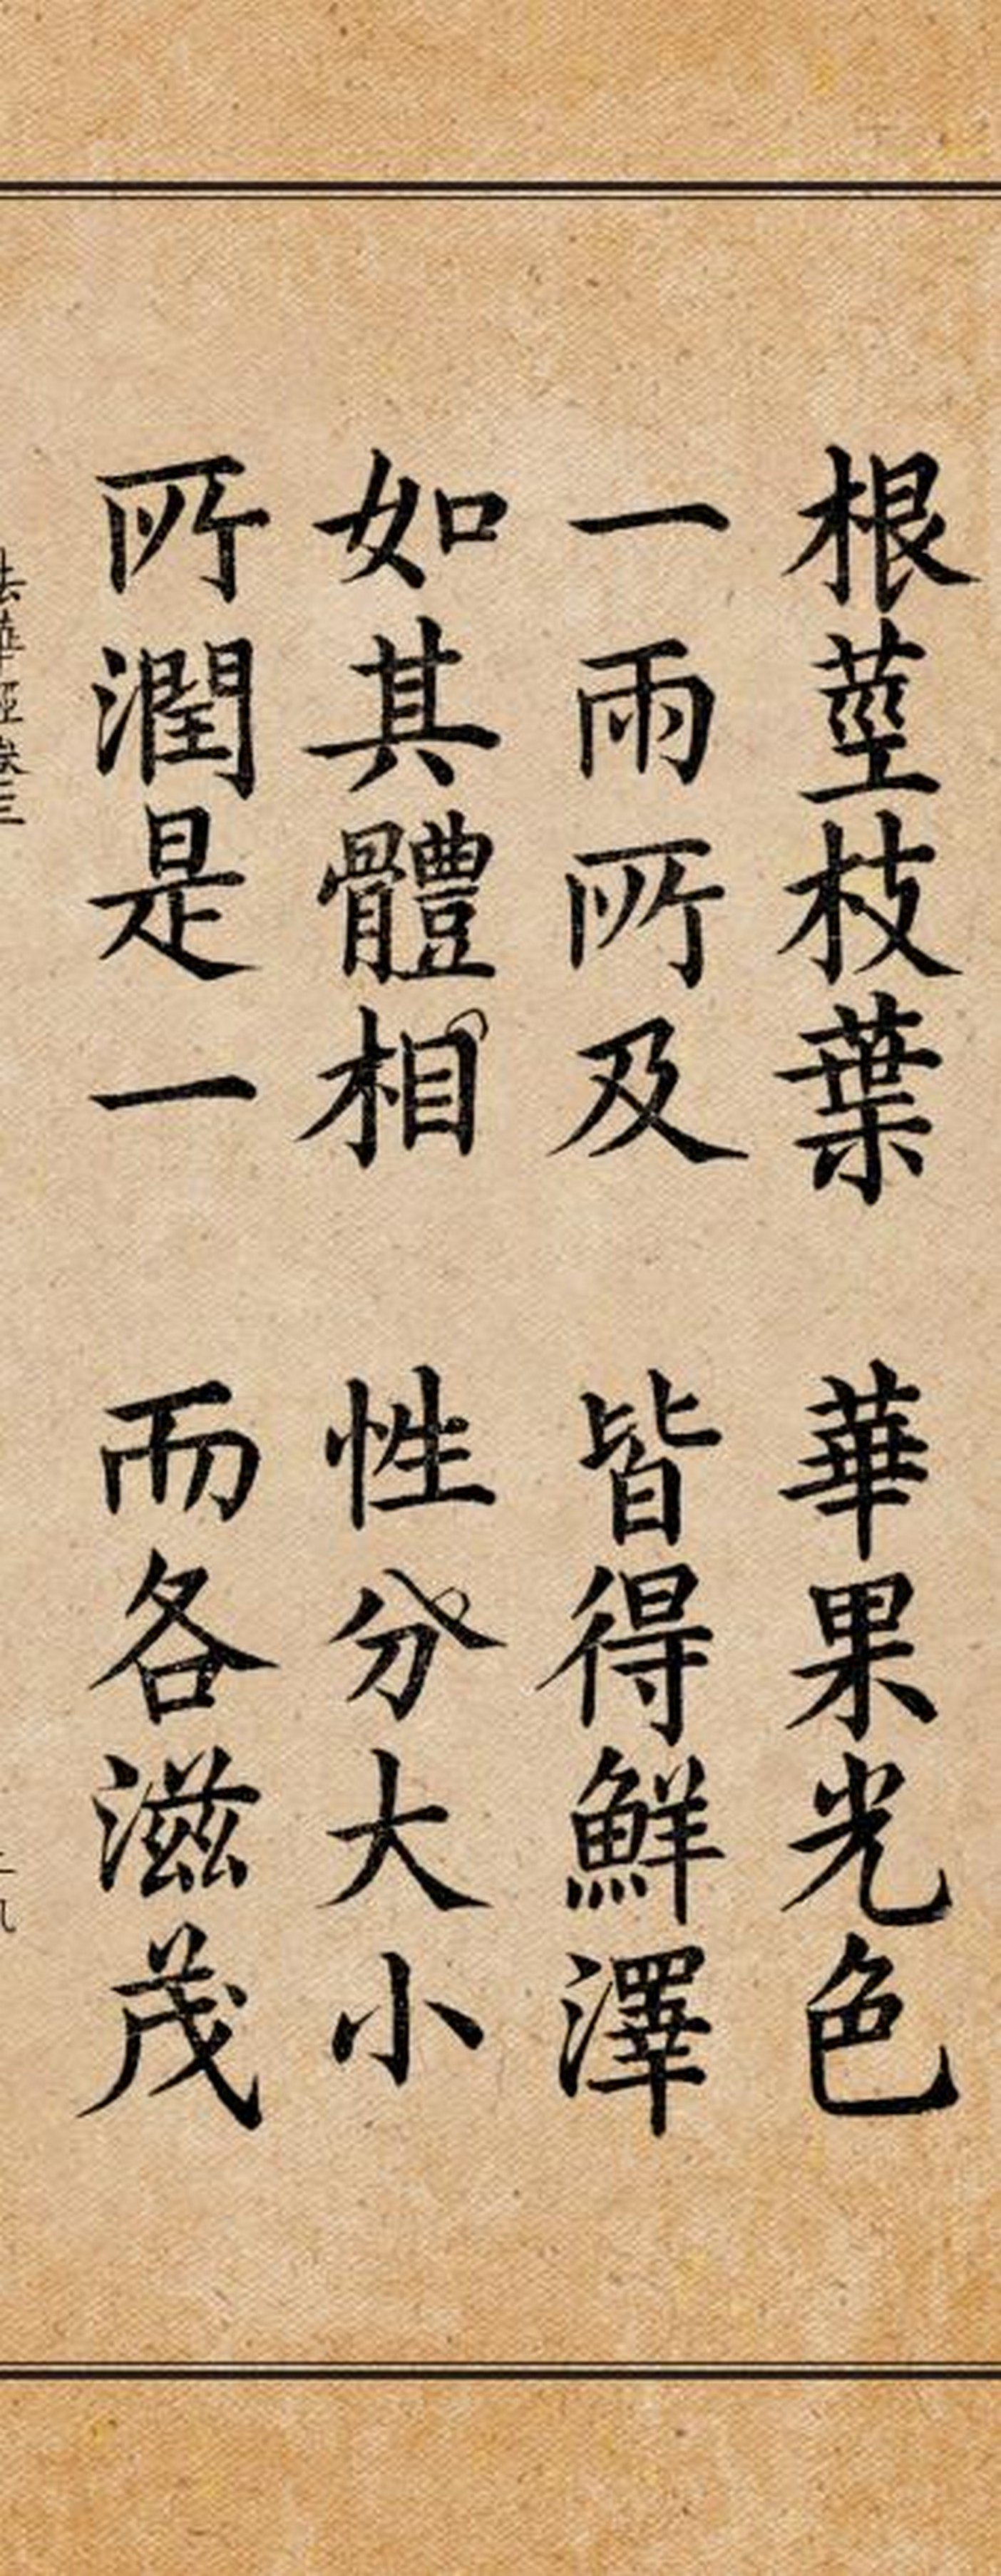 根莖枝葉 華果光色
一雨所及 皆得鮮澤
如其體相 性分大小
所潤是一 而各滋茂
法華經卷三